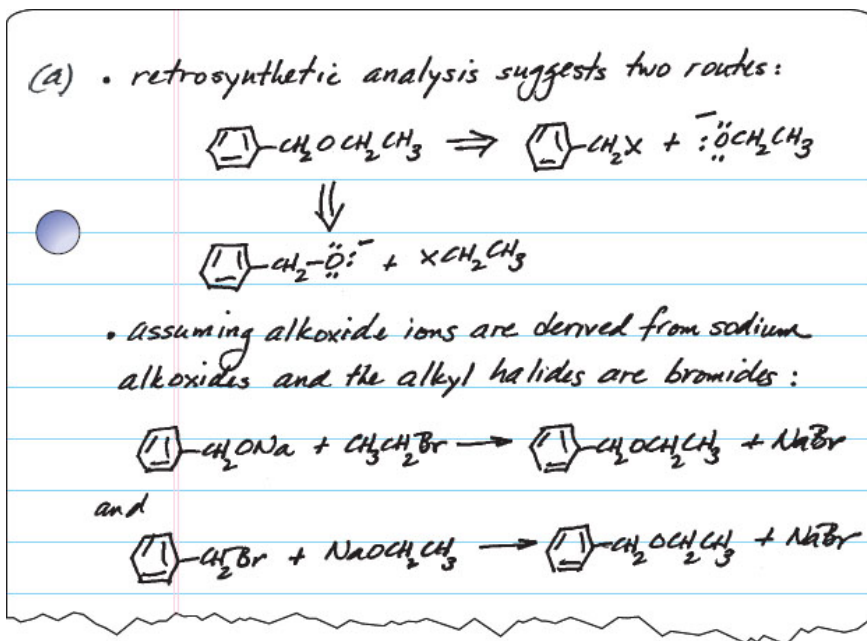 (a) • retrosynthetic analysis suggests two routes:
CH₂OCH₂CH₃ ⇒ CH₂X + ⁻:ÖCH₂CH₃
⇓
CH₂–Ö:⁻ + XCH₂CH₃
• assuming alkoxide ions are derived from sodium
alkoxides and the alkyl halides are bromides:
CH₂ONa + CH₃CH₂Br → CH₂OCH₂CH₃ + NaBr
and
CH₂Br + NaOCH₂CH₃ → CH₂OCH₂CH₃ + NaBr